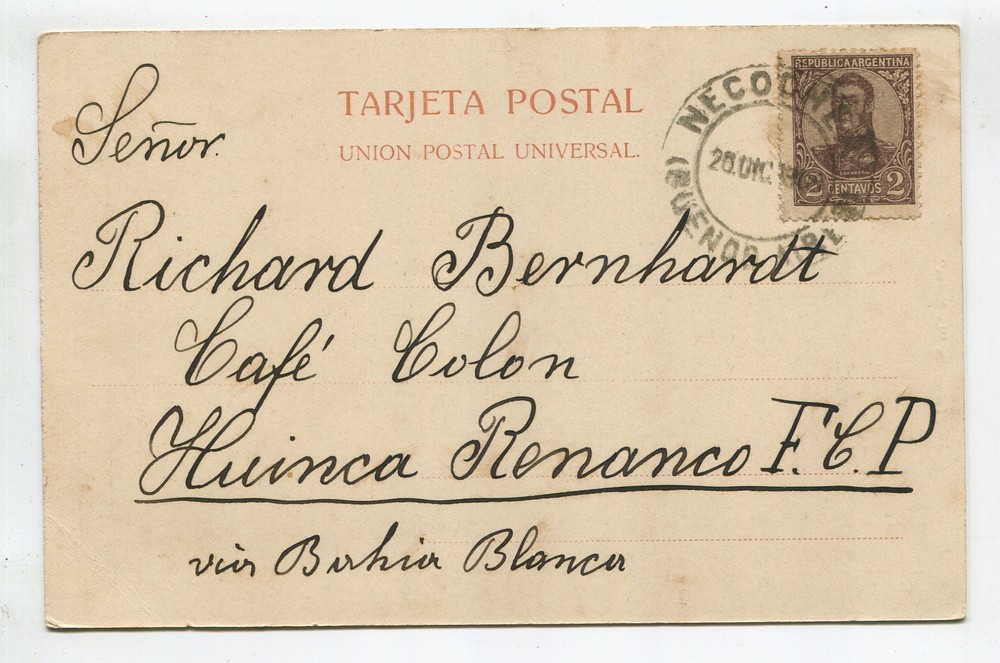 TARJETA POSTAL
UNION POSTAL UNIVERSAL.
REPÚBLICA ARGENTINA
SAN MARTIN
2 CENTAVOS 2
NECOCHEA
20.DIC
(BUENOS AIRES)
Señor.
Richard Bernhardt
Café Colon
Huinca Renanco F.C.P
via Bahia Blanca